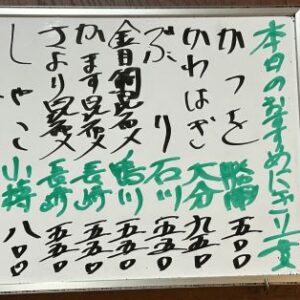 本日のおすすめにぎり一貫
かつを 勝浦 五〇〇
かわはぎ 大分 九五〇
ぶり 石川 五五〇
金目鯛昆布〆 鴨川 五五〇
かます昆布〆 長崎 五五〇
さより昆布〆 長崎 五五〇
しゃこ 小樽 八〇〇